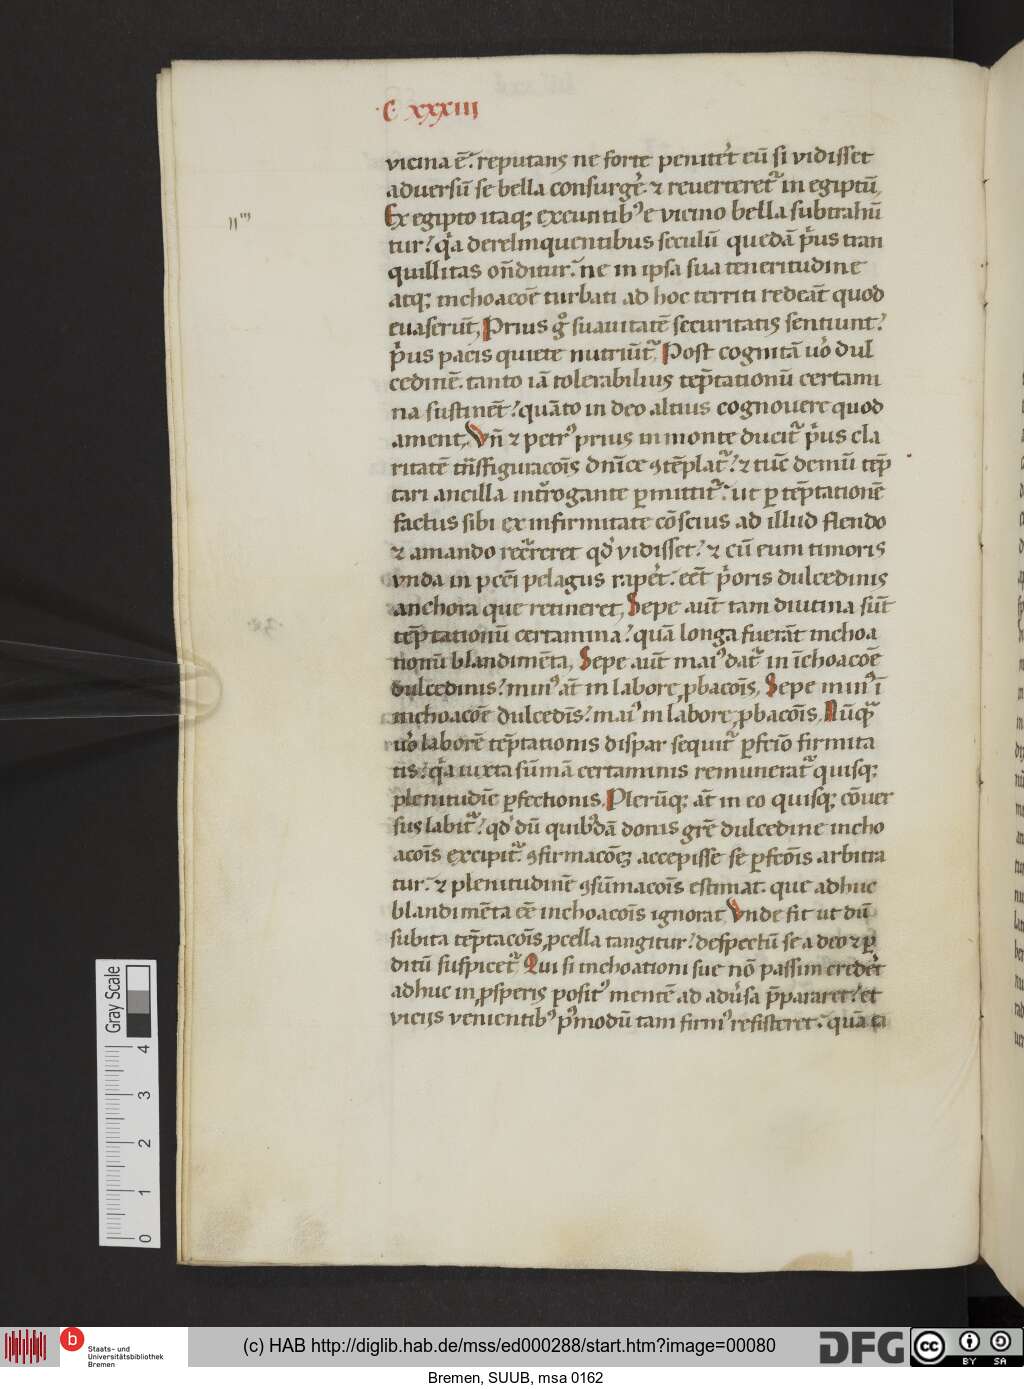 C xxxiii
vicina ē. reputans ne forte penitet̄ eū si vidisset
adversū se bella consurgē. ⁊ reverteret᷑ in egiptū
Ex egipto itaq; exeuntib᷒ e vicino bella subtrahū
tur? qͣ derelinquentibus seculū quedā p̄us tran
quillitas on̄ditur. ne in ipsa sua teneritudine
atq; inchoacōē turbati ad hoc territi redeāt quod
evaserūt, Prius gͦ suavitatē securitatis sentiunt?
p̄us pacis quiete nutriūt᷑. Post cognitā vͦo dul
cedinē. tanto iā tolerabilius tēp̄tationū certami
na sustinēt? quāto in deo altius cognovere quod
ament, Vn̄ ⁊ petr᷒ prius in monte ducit᷑ p̄us cla
ritatē trn̄sfiguracōis dn̄ice ꝯtēplat᷑? ⁊ tūc demū tēp̄
tari ancilla int̄rogante ꝑmittit᷑. ut ꝑ tēp̄tationē
factus sibi ex infirmitate cōscius ad illud flendo
⁊ amando rec̄rreret qd̄ vidisset? ⁊ cū eum timoris
vnda in pcc̄i pelagus rapet̄. eēt p̄oris dulcedinis
anchora que retineret, Sepe aūt tam diutina sūt
tēp̄tationū certamina? quā longa fuerāt inchoa
tionū blandimēta, Sepe aūt mai᷒ dat᷑ in īchoacōē
dulcedinis? min᷒ aūt in labore ꝓbacōis, Sepe min᷒ ī
inchoacōē dulcedīs? mai᷒ in labore ꝓbacōis, Nūqͣ
vͦo laborē tēp̄tationis dispar sequit᷑ ꝑfcīo firmita
tis? qͣ iuxta sūmā certaminis remunerat᷑ quisq;
plenitudīe ꝑfectionis. Plerūq; aūt in eo quisq; cōver
sus labit᷑? qd̄ dū quib᷒dā donis grē dulcedine incho
acōis excipit᷑. ꝯfirmacōēz accepisse se ꝑfcōis arbitra
tur. ⁊ plenitudinē ꝯsūmacōis estimat. que adhuc
blandimēta eē inchoacōis ignorat Vnde fit ut dū
subita tēp̄tacōis ꝓcella tangitur? despectū se a deo ⁊ ꝑ
ditū suspicet᷑ Qui si inchoationi sue nō passim credet̄
adhuc in ꝓsperis posit᷒ mentē ad adv̄sa p̄pararet? et
vicijs venientib᷒ p᷒modū tam firm᷒ resisteret. quā ta
Gray Scale
0 1 2 3 4
b
Staats- und
Universitätsbibliothek
Bremen
(c) HAB http://diglib.hab.de/mss/ed000288/start.htm?image=00080
DFG
cc
BY SA
Bremen, SUUB, msa 0162